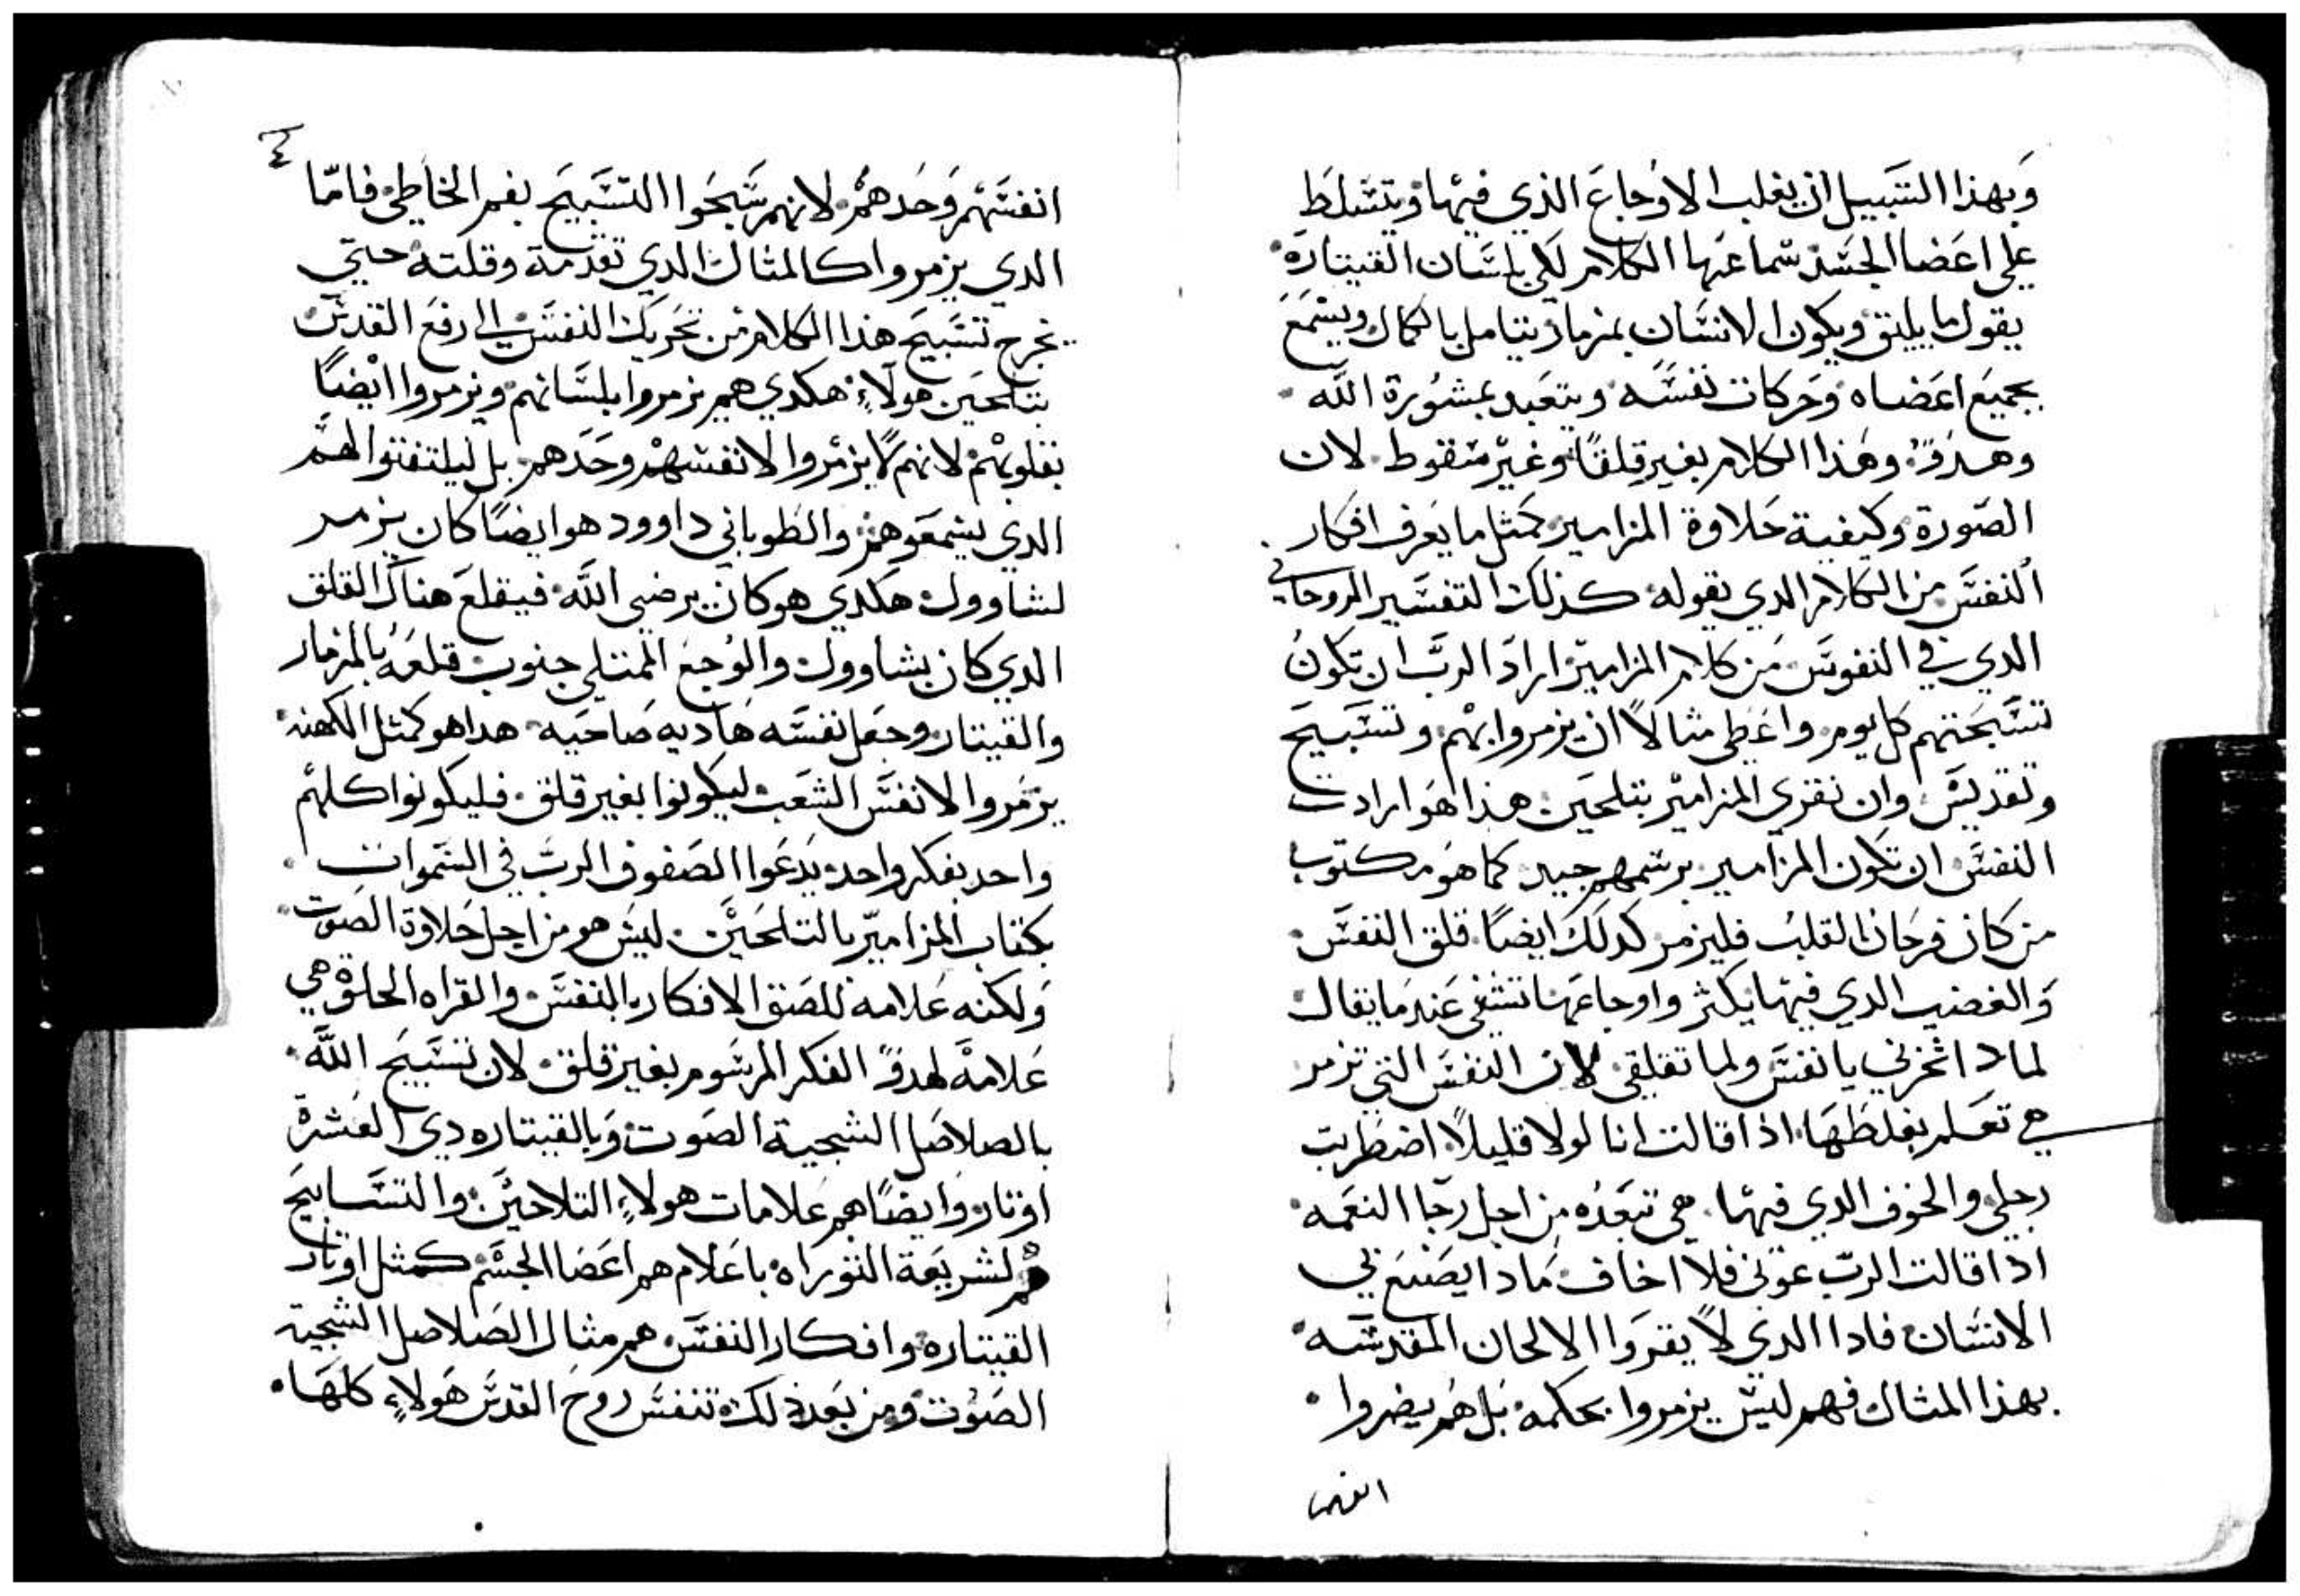 وبهذا السبيل ان يغلب الاوجاع الذي فيها ويتسلط
على اعضا الجسد سماعها الكلام لكي بلسان القيتارة
يقول ما يليق ويكون الانسان بمزمار يتامل بالكمال ويسمع
بجميع اعضاه وحركات نفسه ويتعبد بمشورة الله
وهدؤ وهذا الكلام بغير قلقا وغير منقوط لان
الصورة وكيفية حلاوة المزامير كمثل ما يعرف افكار
النفس من الكلام الدي يقوله كذلك التفسير الروحاني
الدي في النفوس من كلام المزامير اراد الرب ان تكون
تسبحتهم كل يوم واعطى مثالا ان يزمروا بهم وتسبيح
وتقديس وان نقري المزامير بتلحين هذا هو ارادت
النفس ان تكون المزامير برسمهم جيد كما هو مكتوب
من كان فرحان القلب فليزمر كدلك ايضا قلق النفس
والغضب الدي فيها يكثر واوجاعها تشفى عندما يقال
لمادا تحزني يا نفس ولما تقلقي لان النفس التي تزمر
هي تعلم بغلطها اذا قالت انا لولا قليلا اضطربت
رجلي والخوف الدي فيها هي تبعده من اجل رجا النعمه
اذا قالت الرب عوني فلا اخاف مادا يصنع بي
الانسان فادا الدي لا يقروا الالحان المقدسه
بهذا المثال فهم ليس يزمروا بحكمه بل هم يضروا
انفسهم
٤
انفسهم وحدهم لانهم سبحوا التسبيح بفم الخاطي فاما
الدي يزمروا كالمثال الدي تقدمة وقلته حتي
يخرج تسبيح هذا الكلام من تحريك النفس الى رفع القدس
بتلحين هولاء هكدي هم يزمروا بلسانهم ويزمروا ايضا
بقلوبهم لانهم لا يزمروا لانفسهم وحدهم بل ليلتفتوا لهم
الدي يسمعوهم والطوباني داوود هو ايضا كان يزمر
لشاوول هكدي هو كان يرضي الله فيقلع هناك القلق
الدي كان بشاوول والوجع الممتلي جنوب قلعه بالمزمار
والقيتار وجعل نفسه هاديه صاحيه هدا هو كمثل الكهنه
يزمروا لانفس الشعب ليكونوا بغير قلق فليكونوا كلهم
واحد بفكر واحد يدعوا الصفوف الرب في السموات
بكتاب المزامير بالتلحين ليس هو من اجل حلاوة الصوت
ولكنه علامه للصنق الافكار بالنفس والقراه الحلوة هي
علامة لهدؤ الفكر المرسوم بغير قلق لان تسبيح الله
بالصلاصل الشجية الصوت وبالقيتاره دي العشرة
اوتار وايضا هم علامات هولاء التلاحين والتسابيح
لشريعة التوراه باعلام هم اعضا الجسم كمثل اوتار
القيتاره وافكار النفس هم مثال الصلاصل الشجية
الصوت ومن بعد ذلك تنفس روح القدس هولاء كلها